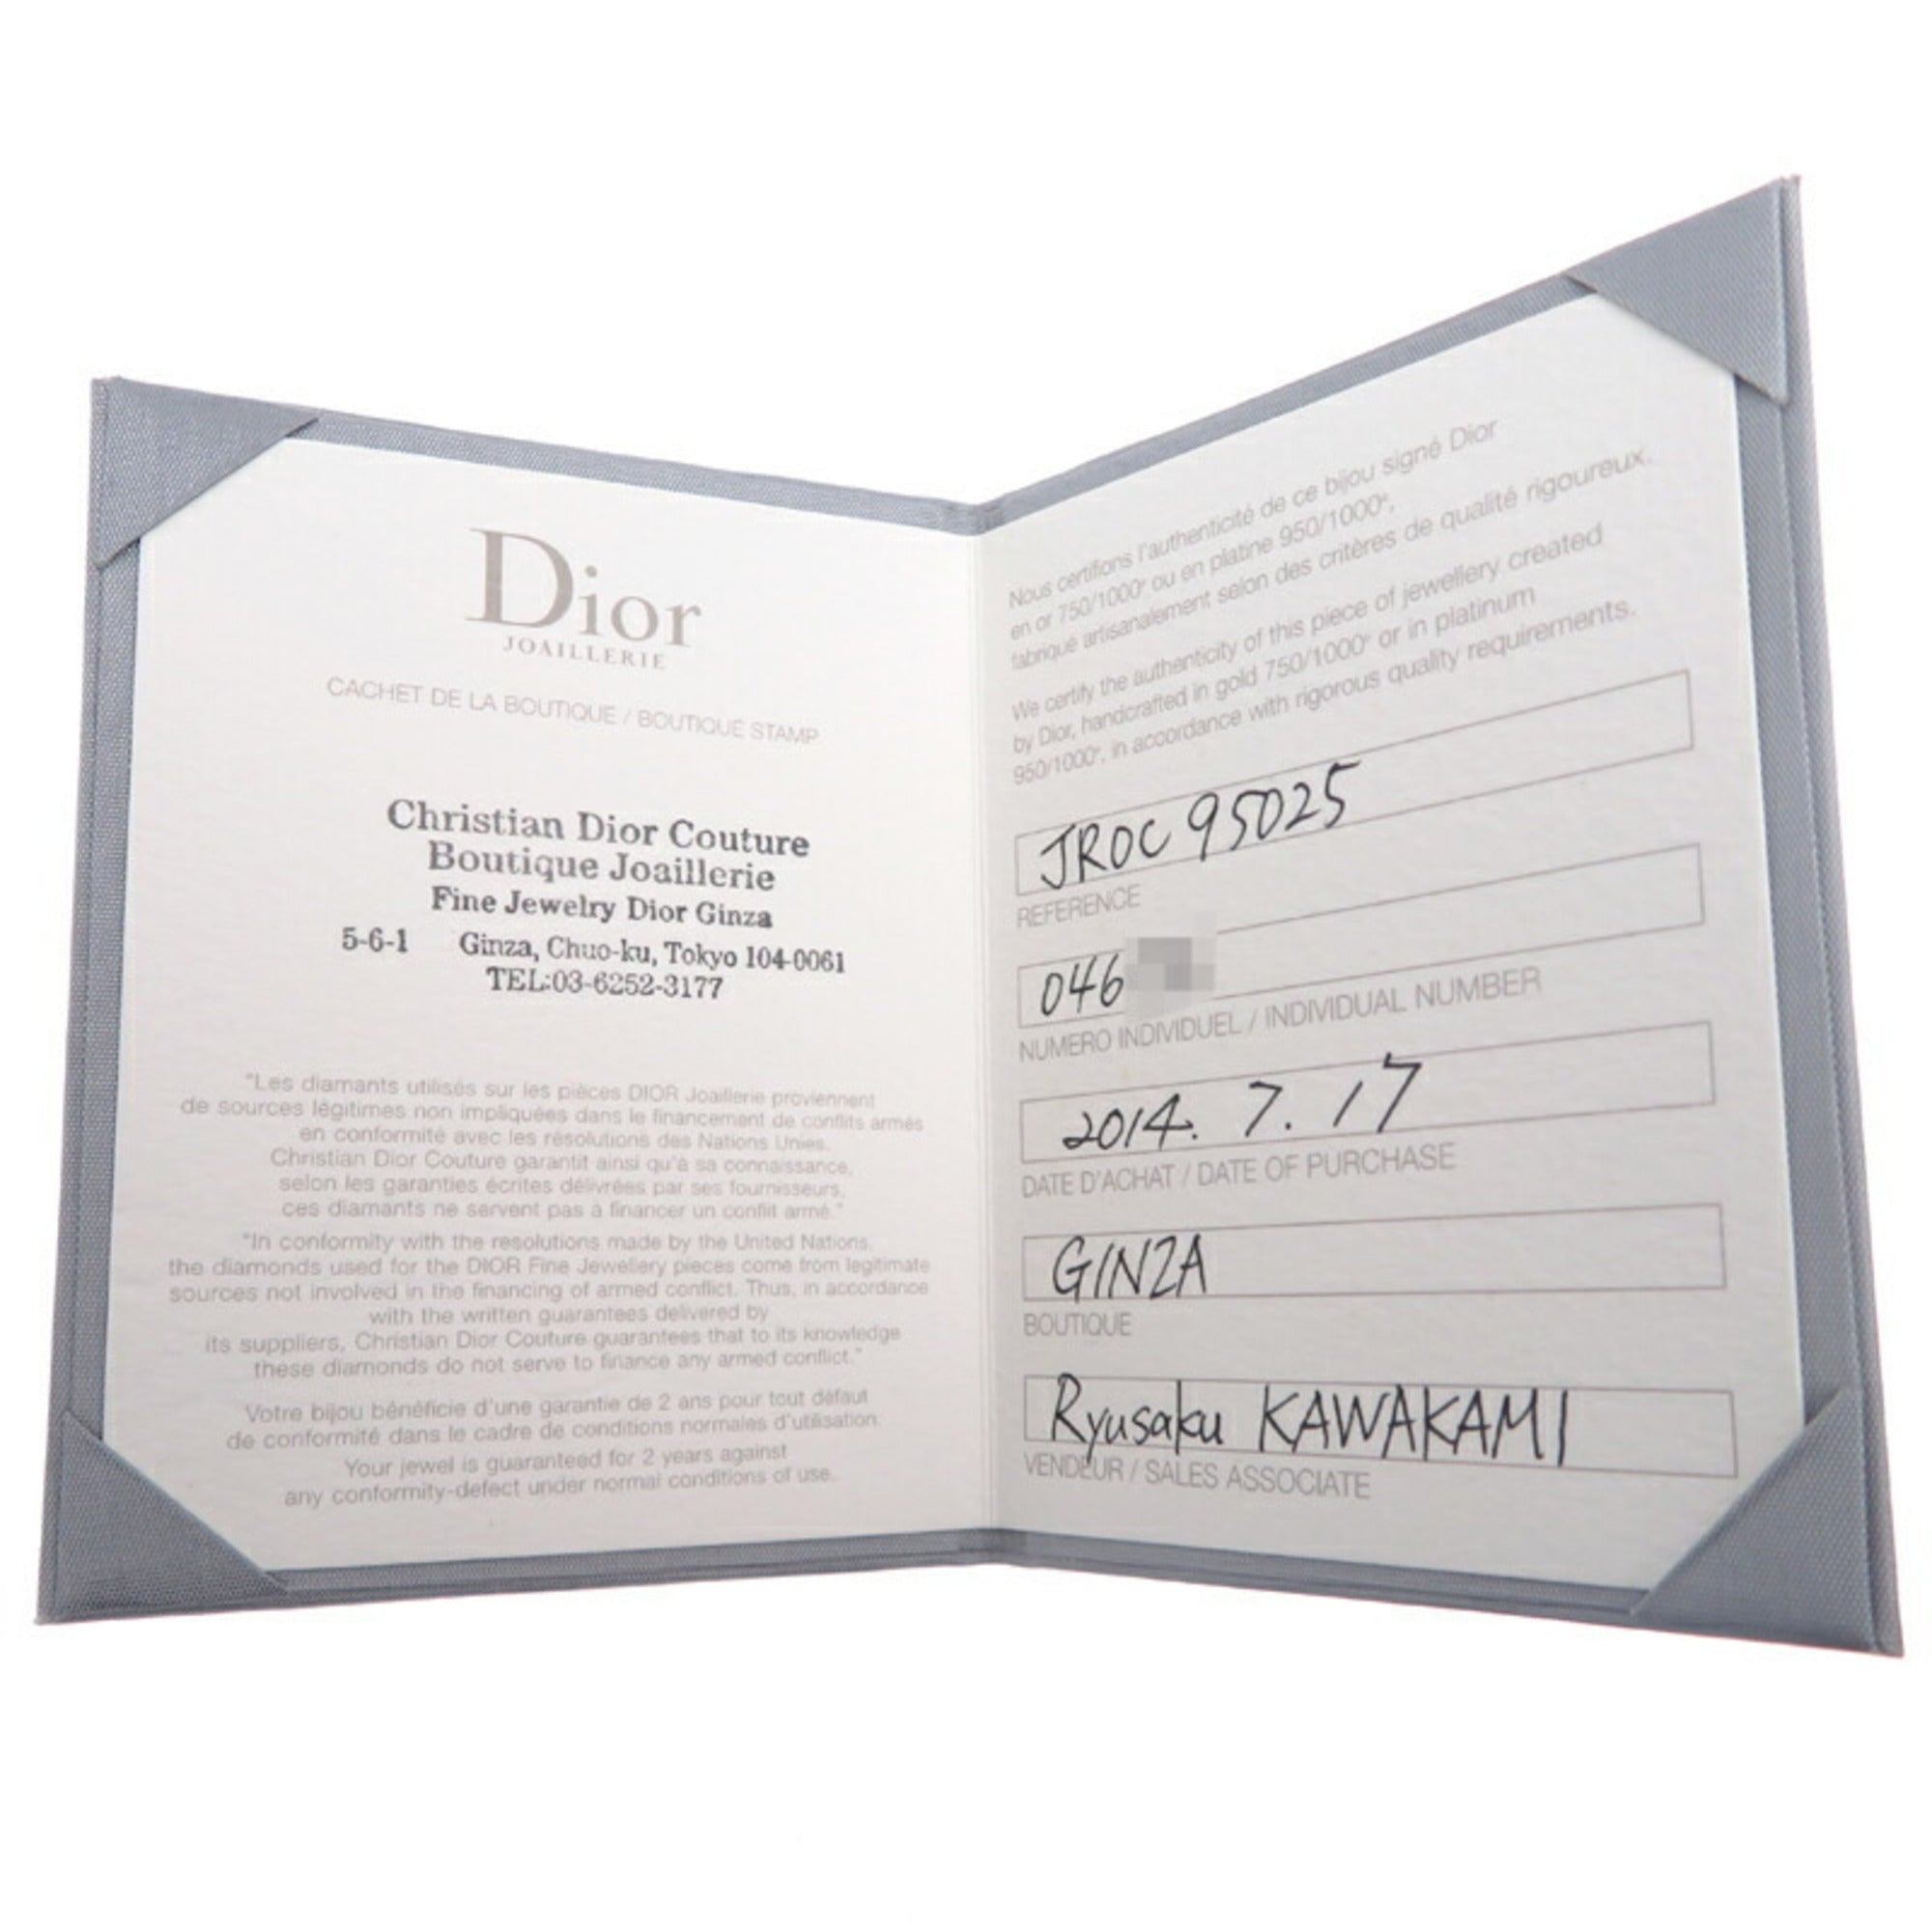 Dior
JOAILLERIE
CACHET DE LA BOUTIQUE / BOUTIQUE STAMP
Christian Dior Couture
Boutique Joaillerie
Fine Jewelry Dior Ginza
5-6-1 Ginza, Chuo-ku, Tokyo 104-0061
TEL:03-6252-3177
"Les diamants utilisés sur les pièces DIOR Joaillerie proviennent
de sources légitimes non impliquées dans le financement de conflits armés
en conformité avec les résolutions des Nations Unies.
Christian Dior Couture garantit ainsi qu'à sa connaissance,
selon les garanties écrites délivrées par ses fournisseurs,
ces diamants ne servent pas à financer un conflit armé."
"In conformity with the resolutions made by the United Nations,
the diamonds used for the DIOR Fine Jewellery pieces come from legitimate
sources not involved in the financing of armed conflict. Thus, in accordance
with the written guarantees delivered by
its suppliers, Christian Dior Couture guarantees that to its knowledge
these diamonds do not serve to finance any armed conflict."
Votre bijou bénéficie d'une garantie de 2 ans pour tout défaut
de conformité dans le cadre de conditions normales d'utilisation.
Your jewel is guaranteed for 2 years against
any conformity-defect under normal conditions of use.
Nous certifions l'authenticité de ce bijou signé Dior
en or 750/1000e ou en platine 950/1000e,
fabriqué artisanalement selon des critères de qualité rigoureux.
We certify the authenticity of this piece of jewellery created
by Dior, handcrafted in gold 750/1000e or in platinum
950/1000e, in accordance with rigorous quality requirements.
JROC 95025
REFERENCE
046
NUMERO INDIVIDUEL / INDIVIDUAL NUMBER
2014. 7. 17
DATE D'ACHAT / DATE OF PURCHASE
GINZA
BOUTIQUE
Ryusaku KAWAKAMI
VENDEUR / SALES ASSOCIATE